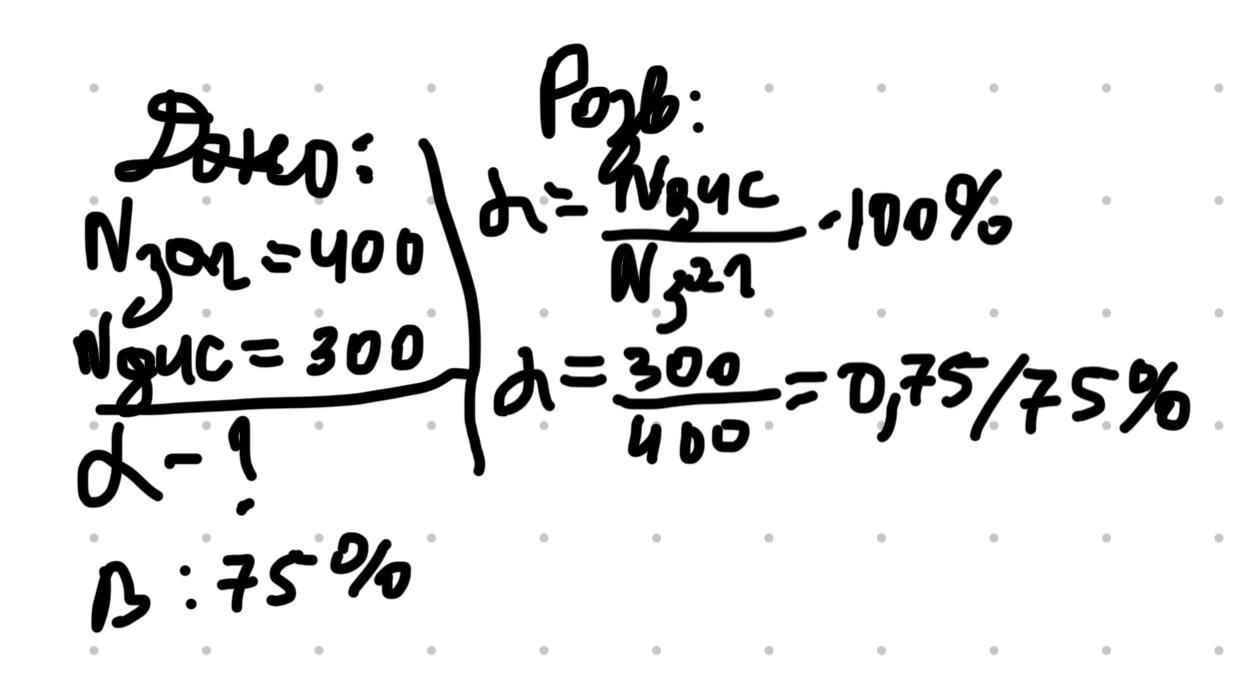 Дано:
Nзаг = 400
Nдис = 300
α - ?
В: 75%
Розв:
α = Nдис / Nзаг · 100%
α = 300 / 400 = 0,75/75%